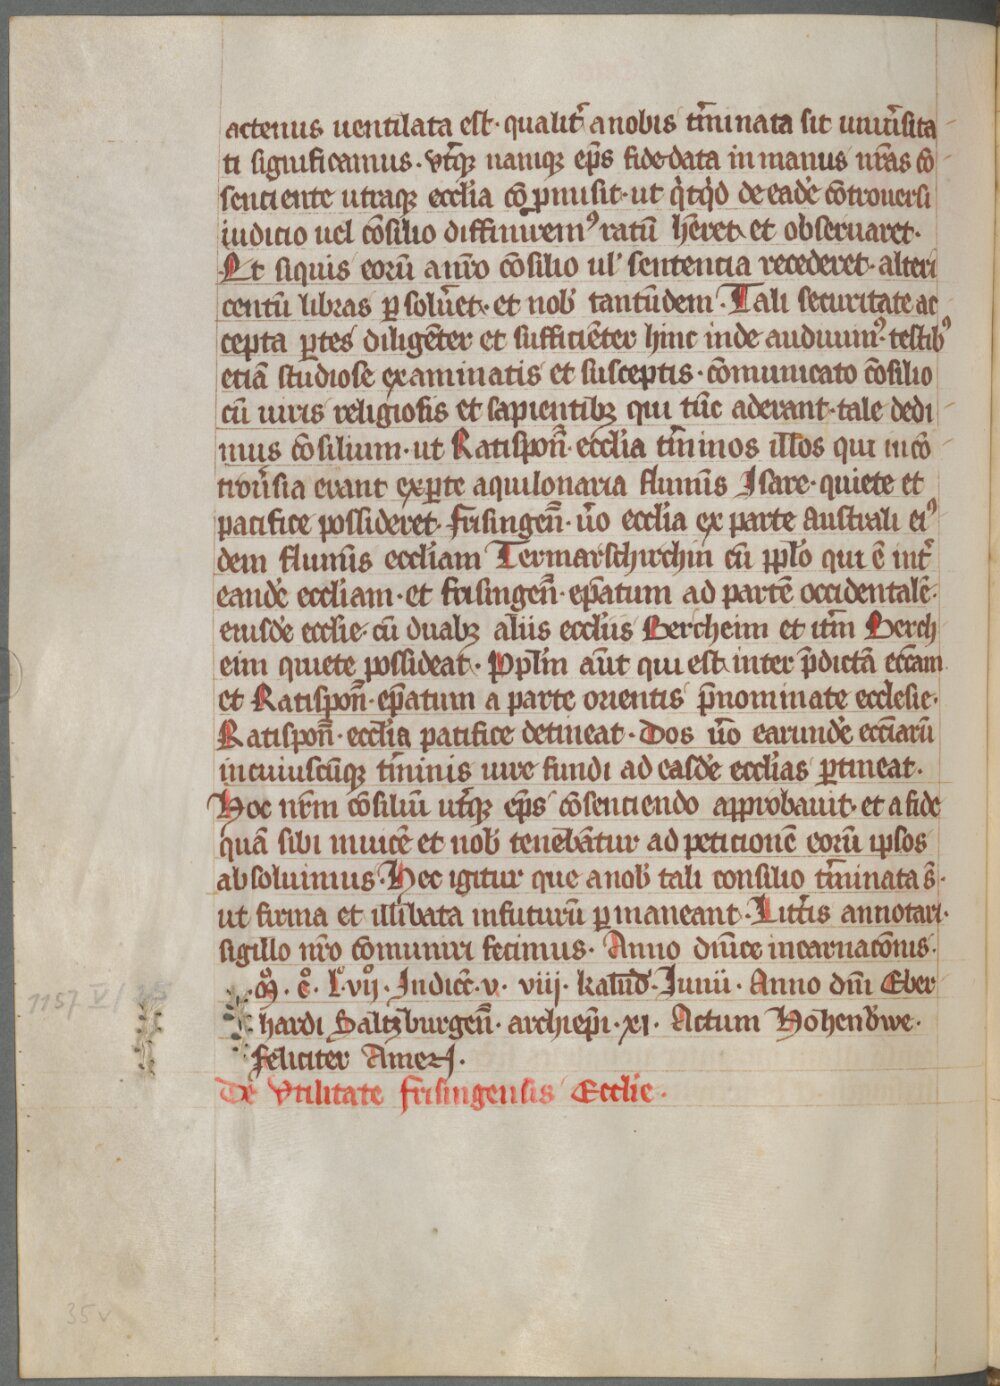 actenus uentilata est· qualit̉ anobis t̉minata sit uniủsita
ti significamus· vt̉q; namq; ep̄s fide data in manus nr̄as cō
senciente utraq; eccl̄ia cōpromisit· ut q̇cq̇d de eadē cōtrouersi
iudicio uel cōsilio diffinirem᷒ ratū hēret et obseruaret·
Et siquis eorū a nr̄o cōsilio ul̓ sentencia recederet· alteri
centū libras p̱solu̓et· et nob̓ tantūdem· Tali securitate ac
cepta p̱tes diligēter et sufficiēter hinc inde audiuim᷒· testib᷒
etiā studiose examinatis et susceptis· cōmunicato cōsilio
cū uiris religiosis et sapientib; qui tūc aderant· tale dedi
mus cōsilium· ut Ratisponn̄· eccl̄ia t̉minos ill̄os qui incō
trou̓sia erant exp̱te aquilonaria flumīs Isare· quiete et
pacifice possideret· frisingen̄· u̓o eccl̄ia ex parte australi ei᷒
dem flumīs eccl̄iam Termarschirchin cū ppl̄o qui ē int̉
eandē eccl̄iam· et frisingen̄· ep̄atum ad partē occidentalē·
eiusdē eccl̄ie· cū duab; aliis eccl̄iis Bercheim et itm̄ Berch
eim quiete possideat· Ppl̄m aūt qui est inter p̄dictā ecc̄am
et Ratispon̄· ep̄atum a parte orientis p̄nominate ecclesie·
Ratispon̄· eccl̄ia pacifice detineat· Dos u̓o earundē ecc̄iarū
in cuiuscūq; t̉minis iure fundi ad easdē eccl̄ias p̱tineat·
Hoc nr̄m cōsiliū ut̉q; ep̄s cōsenciendo approbauit· et a fide
quā sibi inuicē et nob̓ tenebātur ad peticionē eorū ipsos
absoluimus· Hec igitur que a nob̓ tali consilio t̉minata s̄·
ut firma et illibata infuturū p̱maneant· Litt̓is annotari·
sigillo nr̄o cōmuniri fecimus· Anno dn̄ice incarnacōnis·
·M̊· c̊· L̊vij̊· Indict̄· v· viij· kalnd̄· Junii· Anno dn̄i Eber
1157 V/25
hardi Saltzburgen̄· archiep̄i· xi· Actum Hohenb̓we·
feliciter Amen·
De Vtilitate frisingensis Ecclīe·
35v